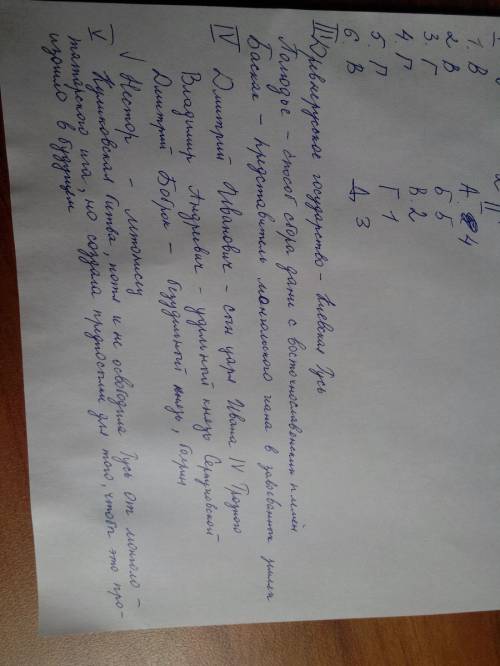 1. В
2. В
3. Г
4. Г
5. Г
6. В
II
А. 4
Б 5
В. 2
Г 1
Д 3
III Древнеруськое государство - Киевская Русь
Полюдье - способ сбора дани с восточнославенских племён
Баскак - представитель монгольского хана в завоёванных землях
IV Дмитрий Иванович - сын царя Ивана IV Грозного
Владимир Андреевич - удельный князь Серпуховской
Дмитрий Боброк - безудельный князь, боярин
√ Нестор - летописец
V Куликовская битва, хотя и не освободила Русь от монголо-
татарского ига, но создала предпосылки для того, чтобы это про-
изошло в будущем